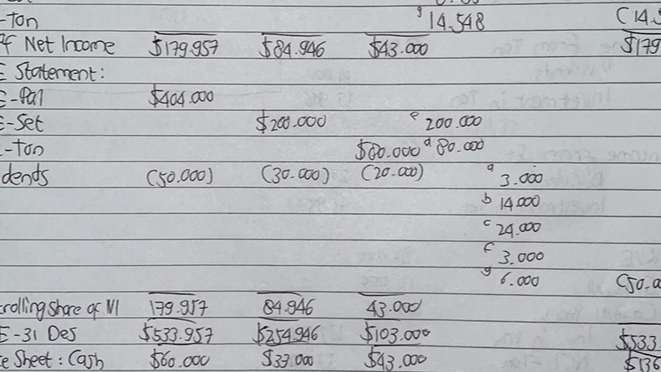 -Ton g 14.548 (14.5
of Net Income $179.957 $84.946 $43.000 $179
E Statement:
E-Pal $404.000
E-Set $200.000 e 200.000
E-Ton $80.000 d 80.000
dends (50.000) (30.000) (20.000) a 3.000
b 14.000
c 24.000
f 3.000
g 6.000 (50.0
trolling Share of NI 179.957 84.946 43.000
E-31 Des $533.957 $254.946 $103.000 $533.
ce Sheet: Cash $60.000 $39.000 $43.000 $136